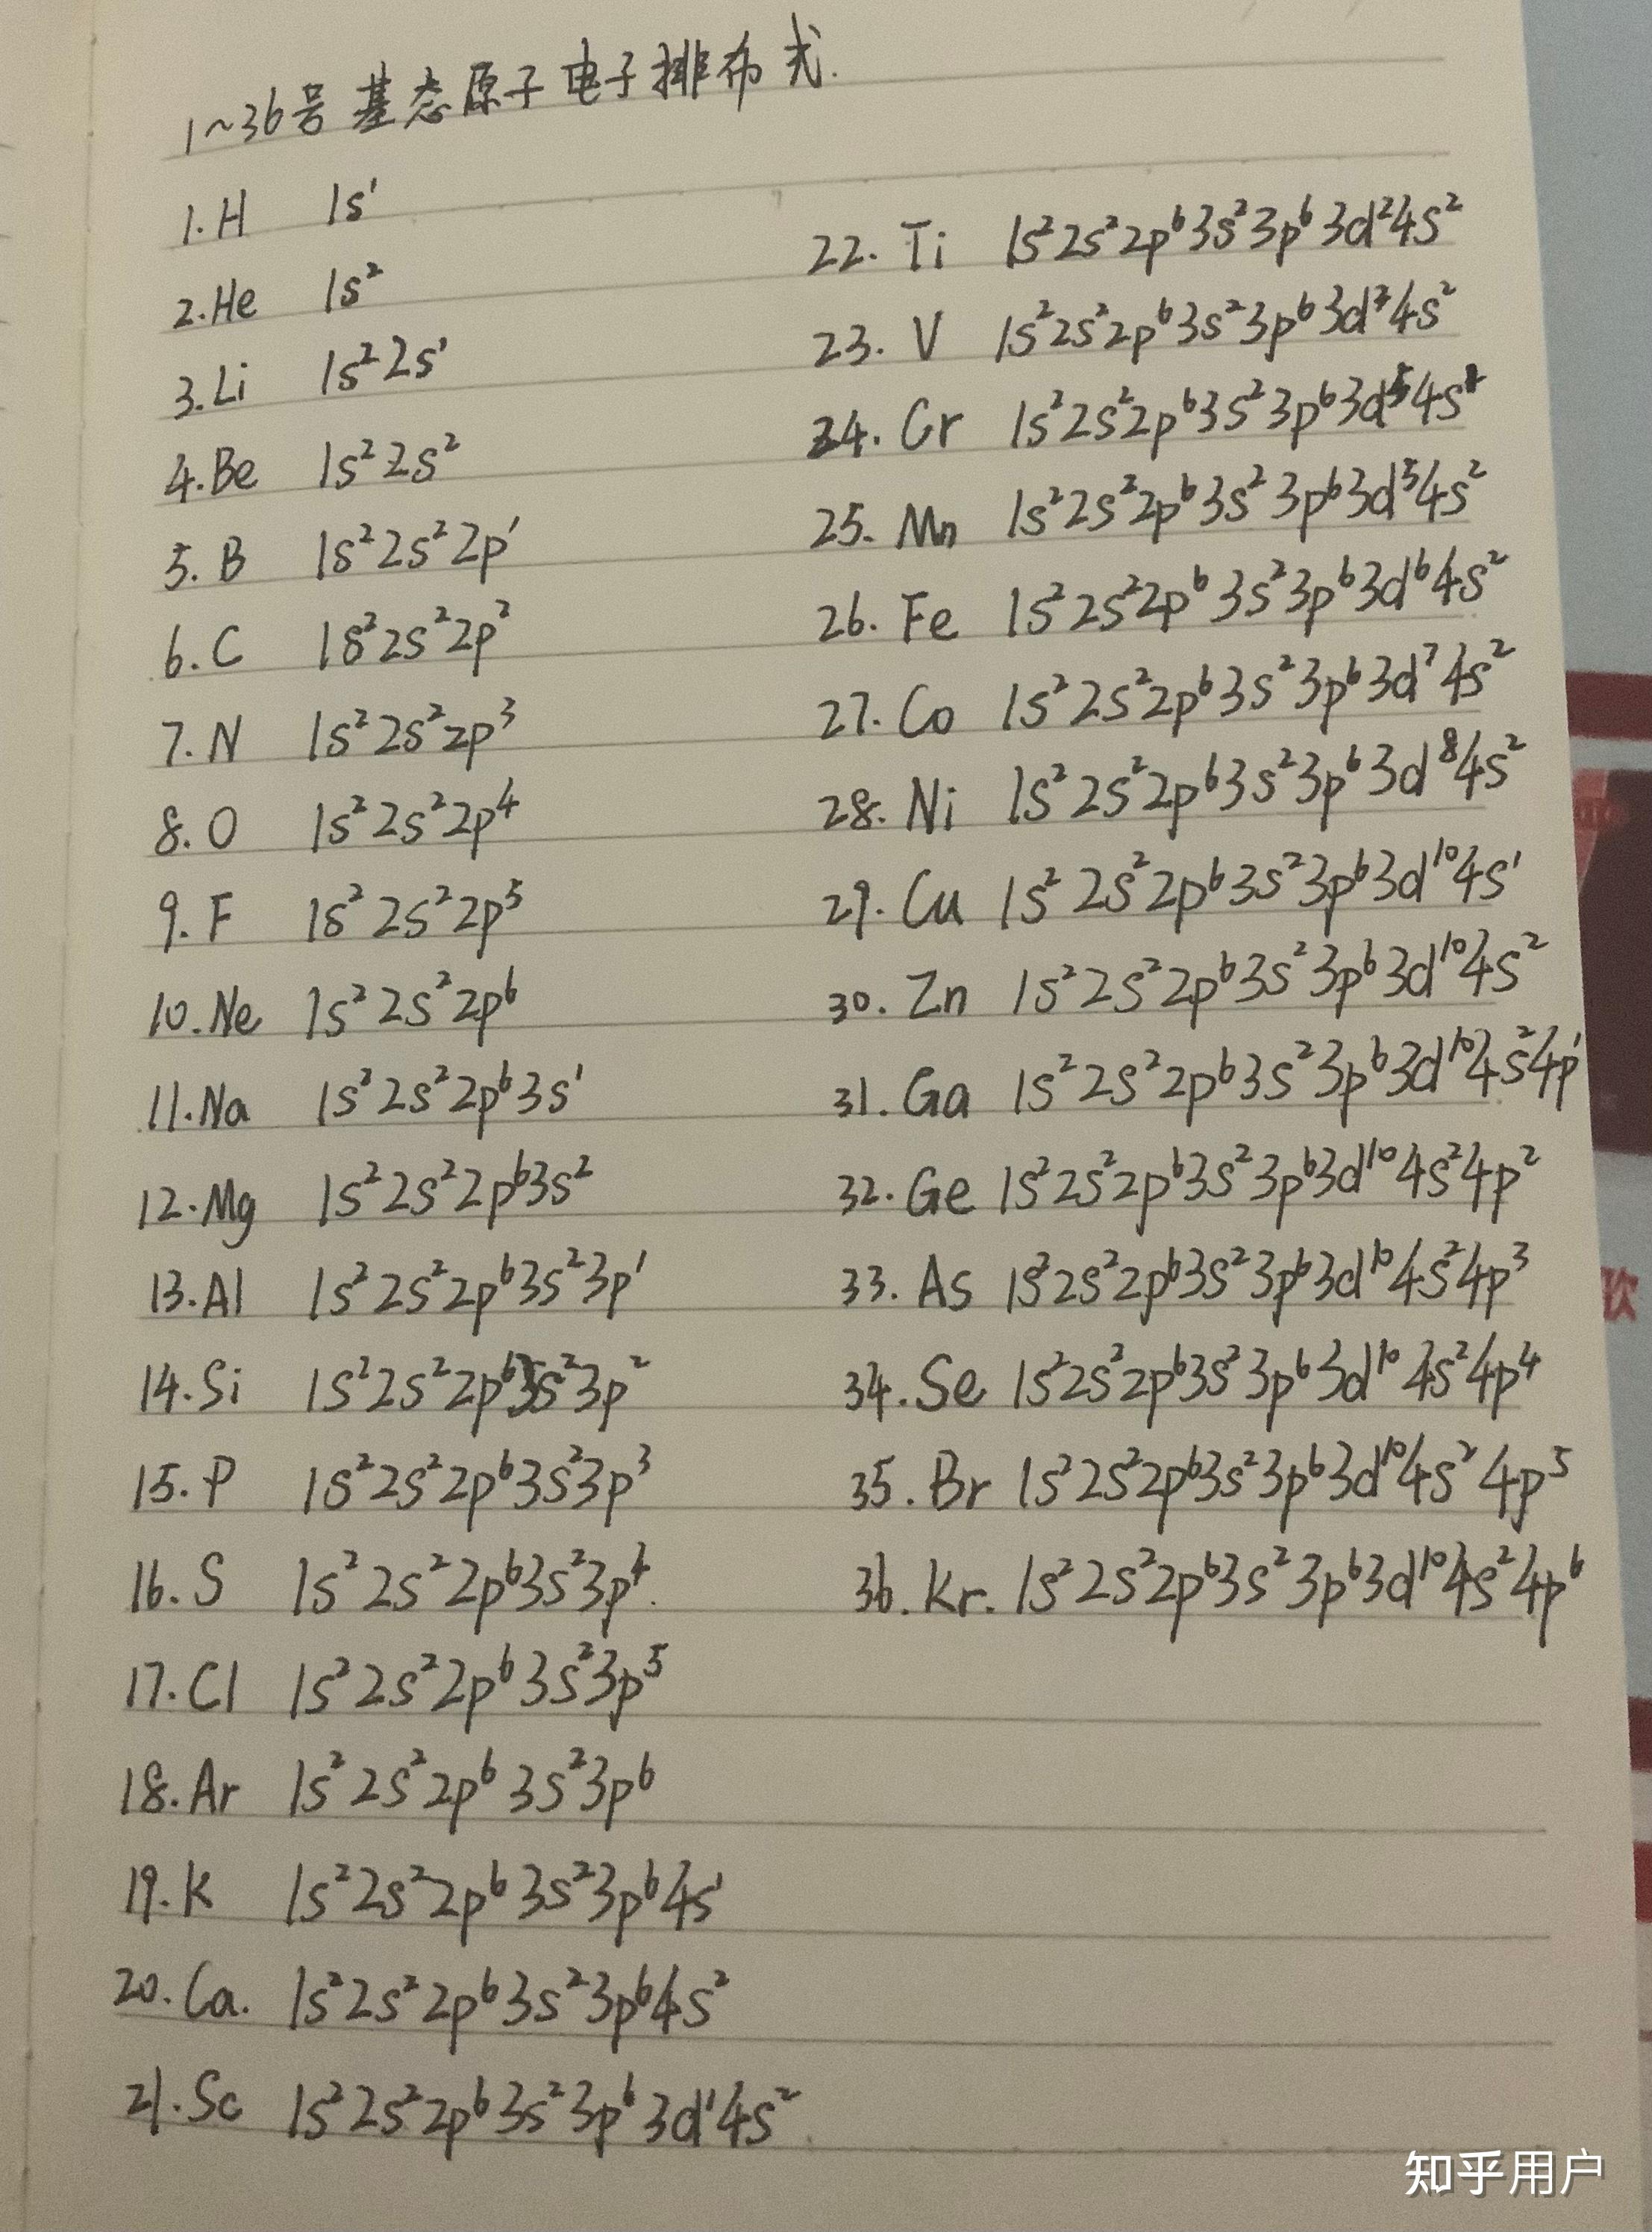 1~36号基态原子电子排布式.
1.H 1s¹
2.He 1s²
3.Li 1s²2s¹
4.Be 1s²2s²
5.B 1s²2s²2p¹
6.C 1s²2s²2p²
7.N 1s²2s²2p³
8.O 1s²2s²2p⁴
9.F 1s²2s²2p⁵
10.Ne 1s²2s²2p⁶
11.Na 1s²2s²2p⁶3s¹
12.Mg 1s²2s²2p⁶3s²
13.Al 1s²2s²2p⁶3s²3p¹
14.Si 1s²2s²2p⁶3s²3p²
15.P 1s²2s²2p⁶3s²3p³
16.S 1s²2s²2p⁶3s²3p⁴.
17.Cl 1s²2s²2p⁶3s²3p⁵
18.Ar 1s²2s²2p⁶3s²3p⁶
19.K 1s²2s²2p⁶3s²3p⁶4s¹
20.Ca. 1s²2s²2p⁶3s²3p⁶4s²
21.Sc 1s²2s²2p⁶3s²3p⁶3d¹4s²
22.Ti 1s²2s²2p⁶3s²3p⁶3d²4s²
23.V 1s²2s²2p⁶3s²3p⁶3d³4s²
24.Cr 1s²2s²2p⁶3s²3p⁶3d⁵4s¹
25.Mn 1s²2s²2p⁶3s²3p⁶3d⁵4s²
26.Fe 1s²2s²2p⁶3s²3p⁶3d⁶4s²
27.Co 1s²2s²2p⁶3s²3p⁶3d⁷4s²
28.Ni 1s²2s²2p⁶3s²3p⁶3d⁸4s²
29.Cu 1s²2s²2p⁶3s²3p⁶3d¹⁰4s¹
30.Zn 1s²2s²2p⁶3s²3p⁶3d¹⁰4s²
31.Ga 1s²2s²2p⁶3s²3p⁶3d¹⁰4s²4p¹
32.Ge 1s²2s²2p⁶3s²3p⁶3d¹⁰4s²4p²
33.As 1s²2s²2p⁶3s²3p⁶3d¹⁰4s²4p³
34.Se 1s²2s²2p⁶3s²3p⁶3d¹⁰4s²4p⁴
35.Br 1s²2s²2p⁶3s²3p⁶3d¹⁰4s²4p⁵
36.Kr. 1s²2s²2p⁶3s²3p⁶3d¹⁰4s²4p⁶
歌
知乎用户